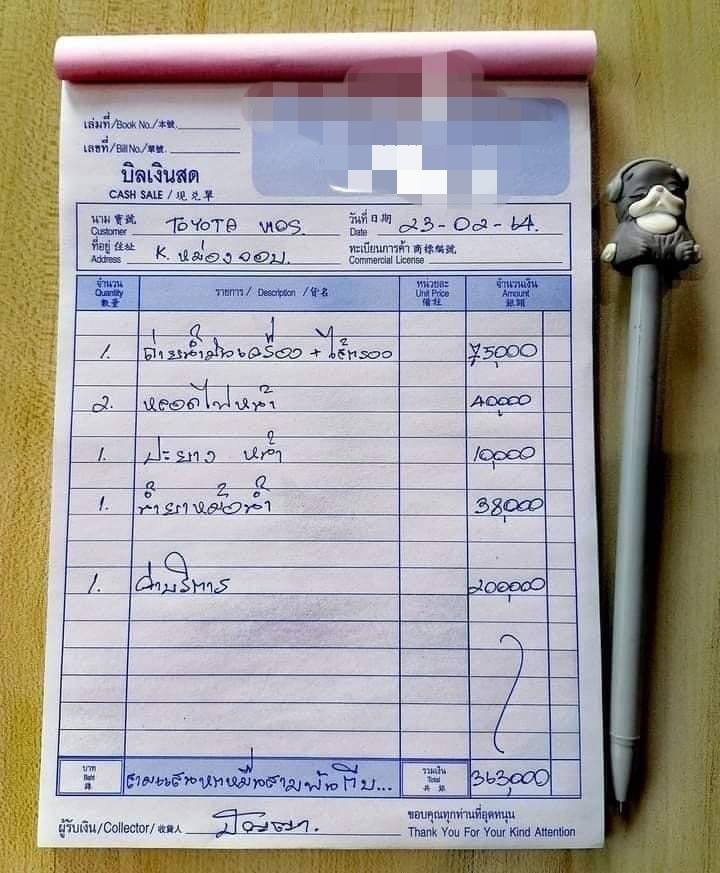 เล่มที่/Book No./本號.
เลขที่/Bill No./單號.
บิลเงินสด
CASH SALE / 現兑單
นาม 寶號 Customer TOYOTA VIOS. วันที่ 日期 Date 23-02-64.
ที่อยู่ 住址 Address K. หม่องออบ. ทะเบียนการค้า 商標編號 Commercial License
จำนวน Quantity 數量 รายการ / Description / 貨名 หน่วยละ Unit Price 備註 จำนวนเงิน Amount 銀額
1. ถ่ายน้ำมันเครื่อง + ไส้กรอง 75,000
2. หลอดไฟหน้า 40,000
1. ปะยาง หน้า 10,000
1. น้ำยาหม้อน้ำ 38,000
1. ค่าบริการ 200,000
บาท Baht 銖 สามแสนหกหมื่นสามพันกีบ... รวมเงิน Total 共銀 363,000
ผู้รับเงิน/Collector/收貨人 ขอบคุณทุกท่านที่อุดหนุน
Thank You For Your Kind Attention